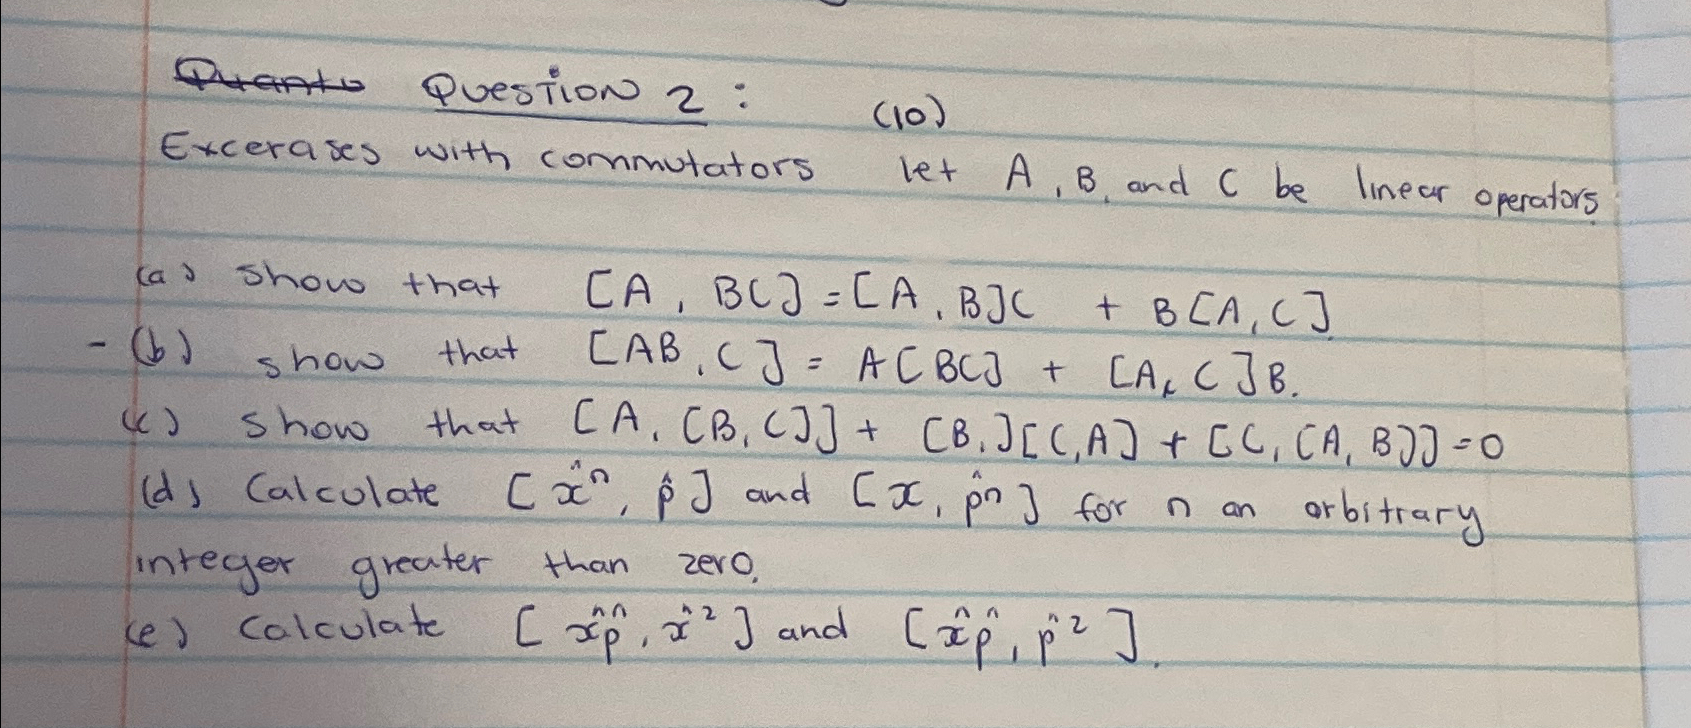 Quanto Question 2 : (10)
Excerases with commutators let A, B, and C be linear operators.
(a) show that [A, BC] = [A, B]C + B[A, C].
- (b) show that [AB, C] = A[BC] + [A, C]B.
(c) show that [A, [B, C]] + [B,][C,A] + [C, [A, B]] = 0
(d) Calculate [x̂ⁿ, p̂] and [x, p̂ⁿ] for n an orbitrary
integer greater than zero.
(e) calculate [x̂p̂, x̂²] and [x̂p̂, p̂²].